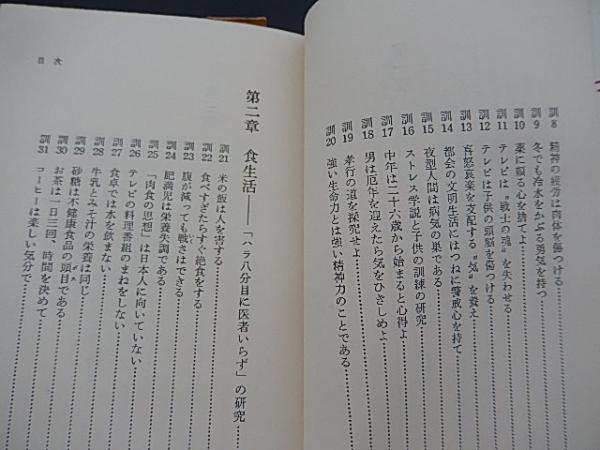 訓8 精神の疲労は肉体を傷つける
訓9 冬でも冷水をかぶる勇気を持つ
訓10 薬に頼る心を捨てよ
訓11 テレビは〝戦士の魂〟を失わせる
訓12 テレビは子供の頭脳を傷つける
訓13 喜怒哀楽を支配する〝気〟を養え
訓14 都会の文明生活にはつねに警戒心を持て
訓15 夜型人間は病気の巣である
訓16 ストレス学説と子供の訓練の研究
訓17 中年は二十六歳から始まると心得よ
訓18 男は厄年を迎えたら気をひきしめよ
訓19 孝行の道を探究せよ
訓20 強い生命力とは強い精神力のことである
第二章 食生活――「ハラ八分目に医者いらず」の研究
訓21 米の飯は人を害する
訓22 食べすぎたらすぐ絶食をする
訓23 腹が減っても戦さはできる
訓24 肥満児は栄養失調である
訓25 「肉食の思想」は日本人に向いていない
訓26 テレビの料理番組のまねをしない
訓27 食卓では水を飲まない
訓28 牛乳とみそ汁の栄養は同じ
訓29 砂糖は不健康食品の頭目である
訓30 お茶は一日三回、時間を決めて
訓31 コーヒーは楽しい気分で
目次